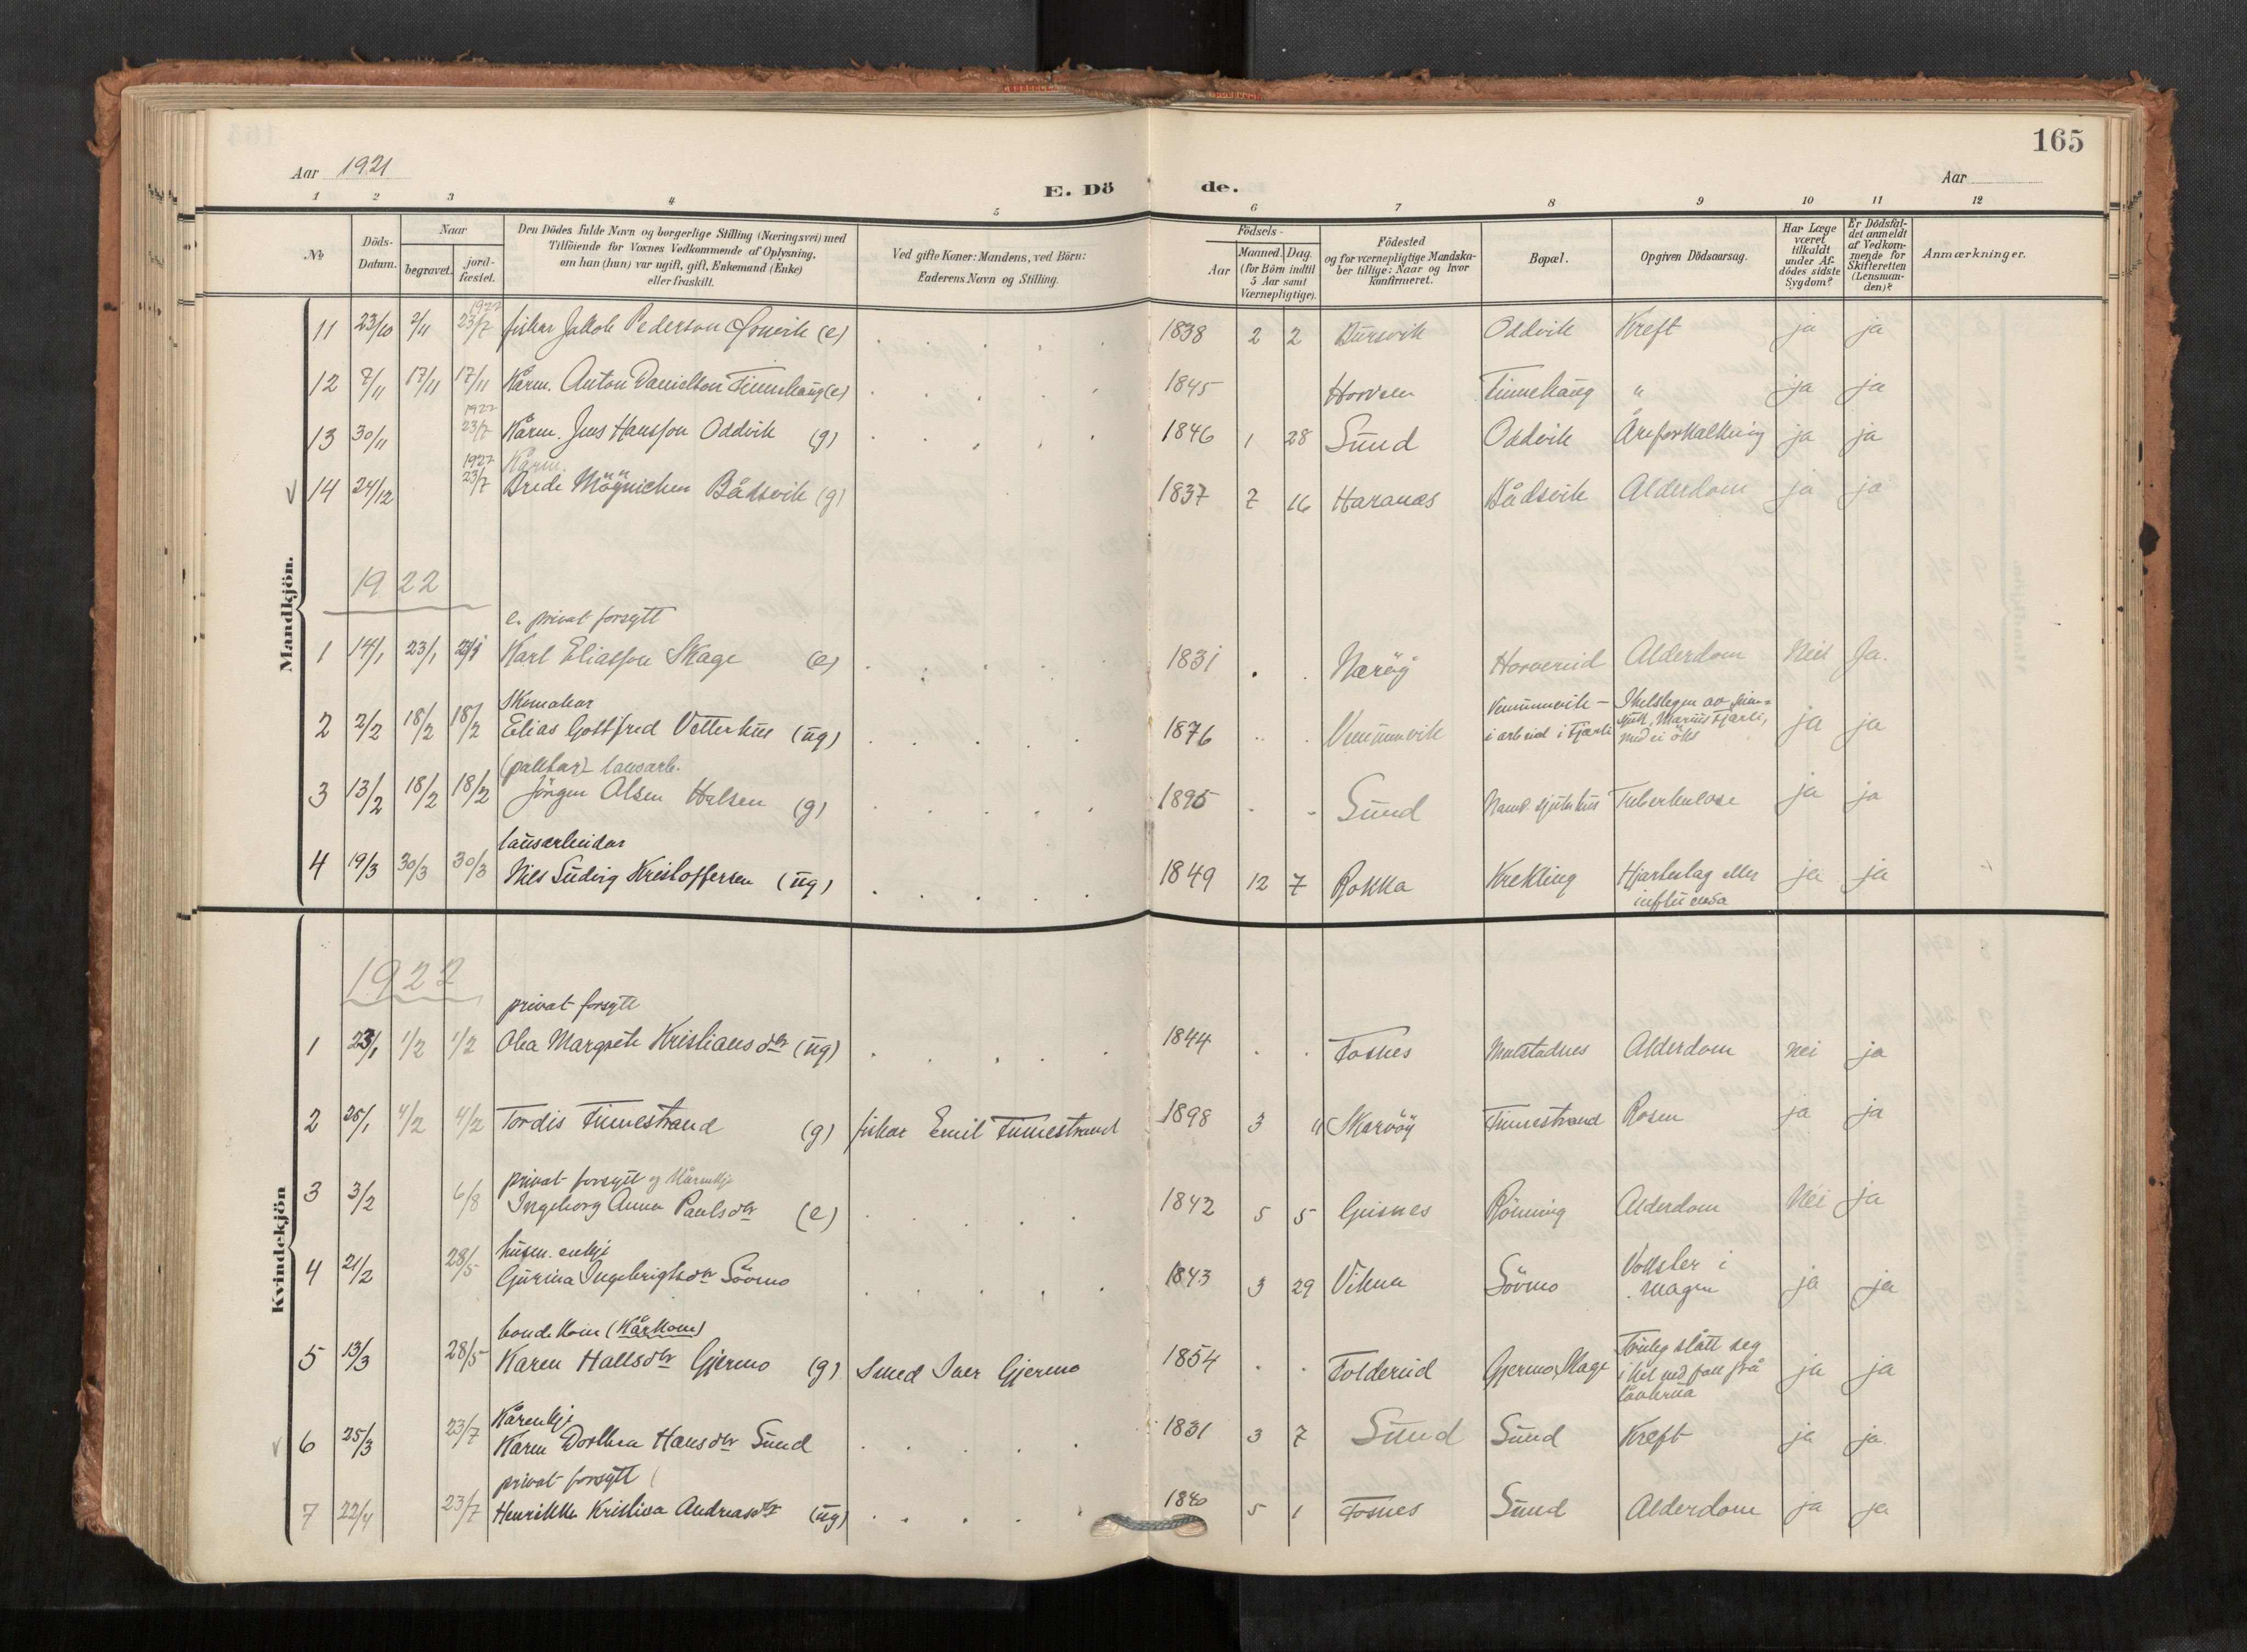 165
Aar 1921
E. Dö de.
Aar
1 2 3 4 5 6 7 8 9 10 11 12
No
Döds-Datum.
Naar
begravet.
jord-fæstet.
Den Dödes fulde Navn og borgerlige Stilling (Næringsvei) med
Tilföiende for Voxnes Vedkommende af Oplysning,
om han (hun) var ugift, gift, Enkemand (Enke)
eller fraskilt.
Ved gifte Koner: Mandens, ved Börn:
Faderens Navn og Stilling.
Födsels-
Aar
Maaned. Dag.
(for Börn indtil
5 Aar samt
Værnepligtige).
Födested
og for værnepligtige Mandska-
ber tillige: Naar og hvor
konfirmeret.
Bopæl.
Opgiven Dödsaarsag.
Har Læge
været
tilkaldt
under Af-
dödes sidste
Sygdom?
Er Dödsfal-
det anmeldt
af Vedkom-
mende for
Skifteretten
(Lensman-
den)?
Anmærkninger.
Mandkjön.
1922
11 23/10 2/11 23/7 fiskar Jakob Pederson (e) 1838 2 2 Bursvik Oddvik Kreft ja ja
12 7/11 17/11 17/11 Kårm. Anton Danielson Finnehaug (e) 1845 Finnehaug " ja ja
1922
13 30/11 23/7 Kårm. Jens Hansson Oddvik (g) 1846 1 28 Sund Oddvik Åreforkalkning ja ja
1922 Kårm.
14 24/12 23/7 Brede Bådsvik (g) 1837 7 16 Haranes Bådsvik Alderdom ja ja
1922
e. privat forsytt
1 14/1 23/1 23/1 Karl Eliasson Skage (e) 1831 Næröy Alderdom Nei Ja.
Skomakar
2 2/2 18/2 18/2 Elias Gottfred Vetterhus (ug) 1876 Vemunnvik Vemunnvik - i arbeid i Fjærli Ihelslegen av sinnsjuk, Marius Fjærli, med ei öks ja ja
lausarb.
3 13/2 18/2 18/2 Jörgen Olsen Halsen (g) 1895 Sund Namd. sjukehus Tuberkulose ja ja
lausarbeidar
4 19/3 30/3 30/3 Nils Ludvig Kristoffersen (ug) 1849 12 7 Rokka Krekling Hjarteslag eller
influensa ja ja
Kvindekjön
1922
privat forsytt
1 23/1 1/2 1/2 Olea Margrete Kristiansdtr (ug) 1844 Fosnes Alderdom nei ja
2 25/1 4/2 4/2 Tordis Finnestrand (g) fiskar Emil Finnestrand 1898 3 11 Skarvöy Finnestrand Rosen ja ja
privat forsytt og Kårenkje
3 3/2 6/8 Ingeborg Anna Paulsdtr (e) 1842 5 5 Geisnes Rönning Alderdom Nei ja
husm. enkje
4 21/2 28/5 Gurina Ingebrigtsdtr Sövmo 1843 3 29 Vikna Sövmo Vokster i
magen ja ja
bondekone (Kårkone)
5 13/3 28/5 Karen Hallsdtr Gjermo (g) Smed Iver Gjermo 1854 Foldereid Gjermo, Skage Truleg slått seg
i hel ved fall frå
låvebrua ja ja
Kårenkje
6 25/3 23/7 Karen Dorthea Hansdtr Sund 1831 3 7 Sund Sund Kreft ja ja
privat forsytt
7 22/4 23/7 Henrikke Kristina Andreasdtr (ug) 1840 5 1 Fosnes Sund Alderdom ja ja